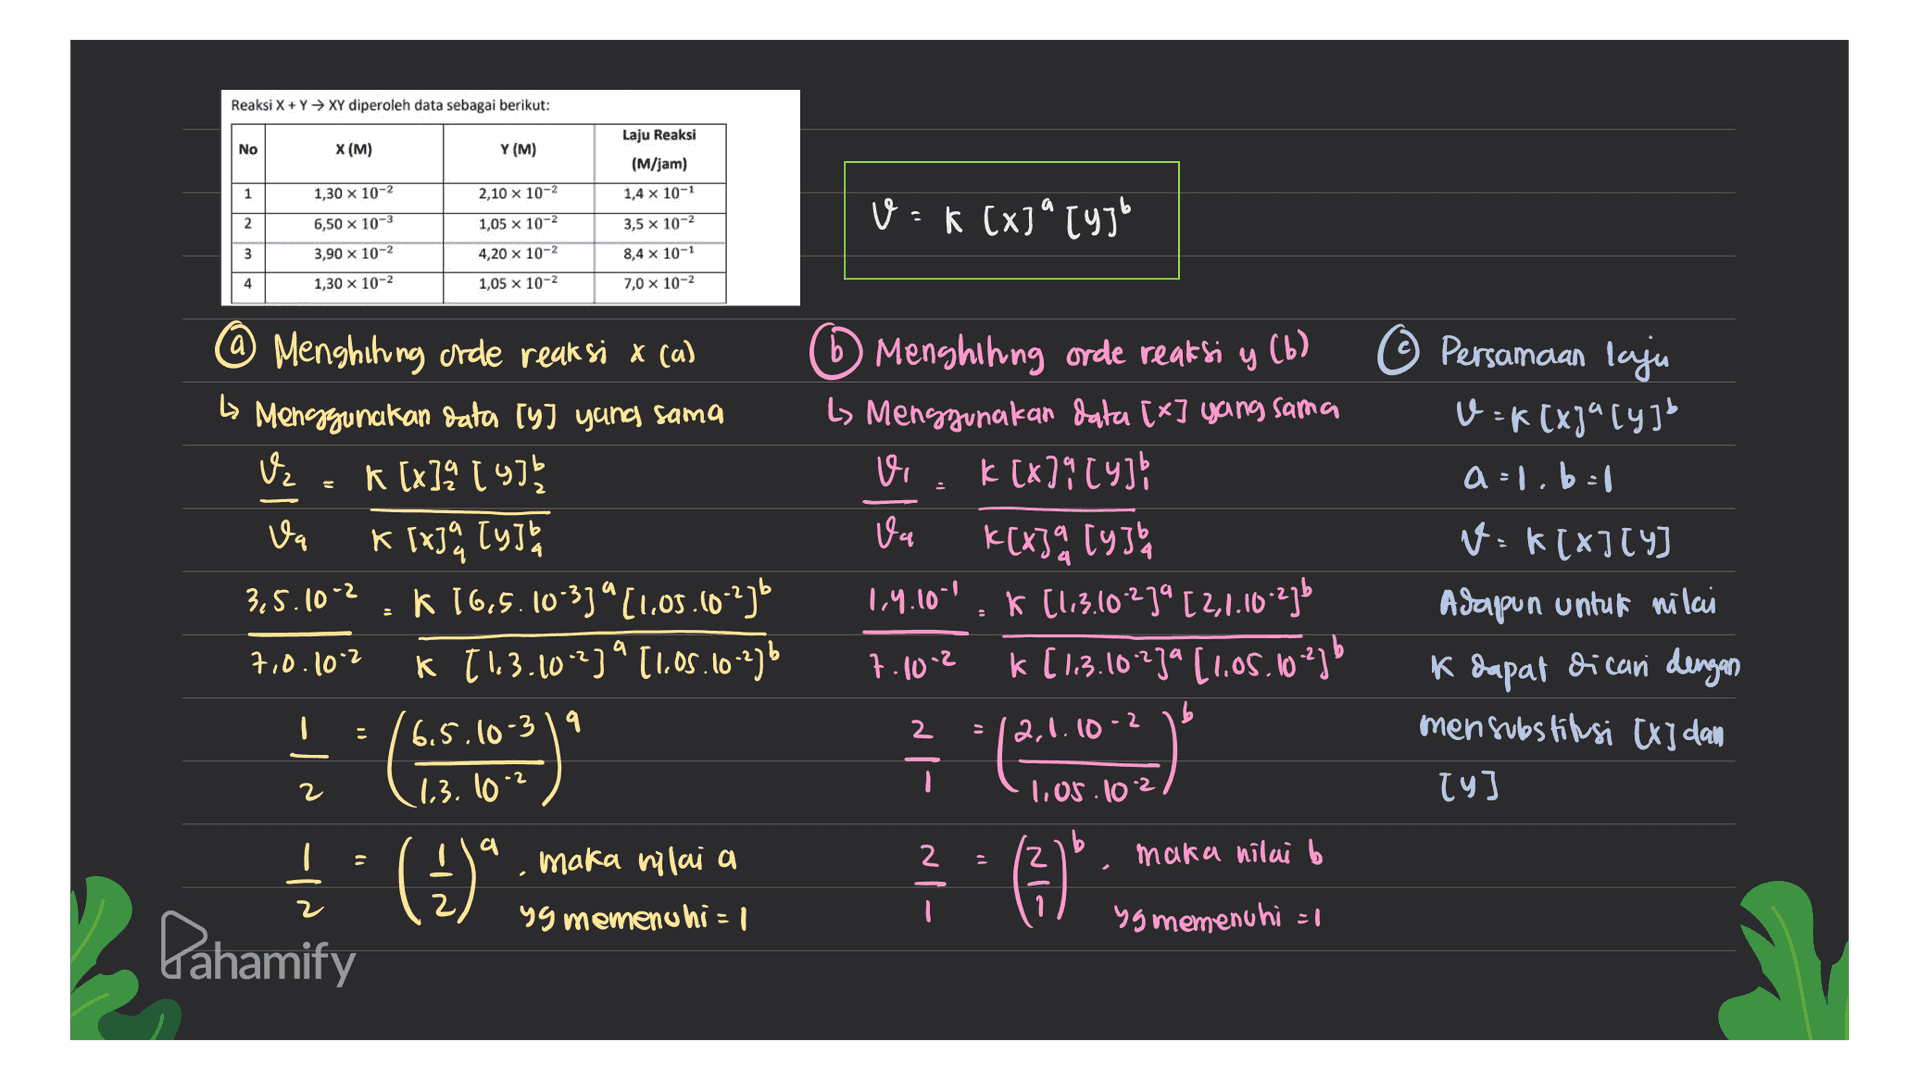 Reaksi X + Y → XY diperoleh data sebagai berikut:
No X (M) Y (M) Laju Reaksi (M/jam)
1 1,30 × 10⁻² 2,10 × 10⁻² 1,4 × 10⁻¹
2 6,50 × 10⁻³ 1,05 × 10⁻² 3,5 × 10⁻²
3 3,90 × 10⁻² 4,20 × 10⁻² 8,4 × 10⁻¹
4 1,30 × 10⁻² 1,05 × 10⁻² 7,0 × 10⁻²
v = k [x]ᵃ [y]ᵇ
ⓐ Menghitung orde reaksi x (a)
↳ Menggunakan data [y] yang sama
v₂ = k [x]₂ᵃ [y]₂ᵇ
v₄ k [x]₄ᵃ [y]₄ᵇ
3,5.10⁻² = k [6,5.10⁻³]ᵃ [1,05.10⁻²]ᵇ
7,0.10⁻² k [1,3.10⁻²]ᵃ [1,05.10⁻²]ᵇ
1 = (6,5.10⁻³)ᵃ
2 (1,3.10⁻²)
1 = (1)ᵃ, maka nilai a
2 (2) yg memenuhi = 1
ⓑ Menghitung orde reaksi y (b)
↳ Menggunakan data [x] yang sama
v₁ = k [x]₁ᵃ [y]₁ᵇ
v₄ k [x]₄ᵃ [y]₄ᵇ
1,4.10⁻¹ = k [1,3.10⁻²]ᵃ [2,1.10⁻²]ᵇ
7.10⁻² k [1,3.10⁻²]ᵃ [1,05.10⁻²]ᵇ
2 = (2,1.10⁻²)ᵇ
1 (1,05.10⁻²)
2 = (2)ᵇ, maka nilai b
1 (1) yg memenuhi = 1
ⓒ Persamaan laju
v = k [x]ᵃ [y]ᵇ
a = 1, b = 1
v = k [x] [y]
Adapun untuk nilai
k dapat dicari dengan
mensubstitusi [x] dan
[y]
Pahamify